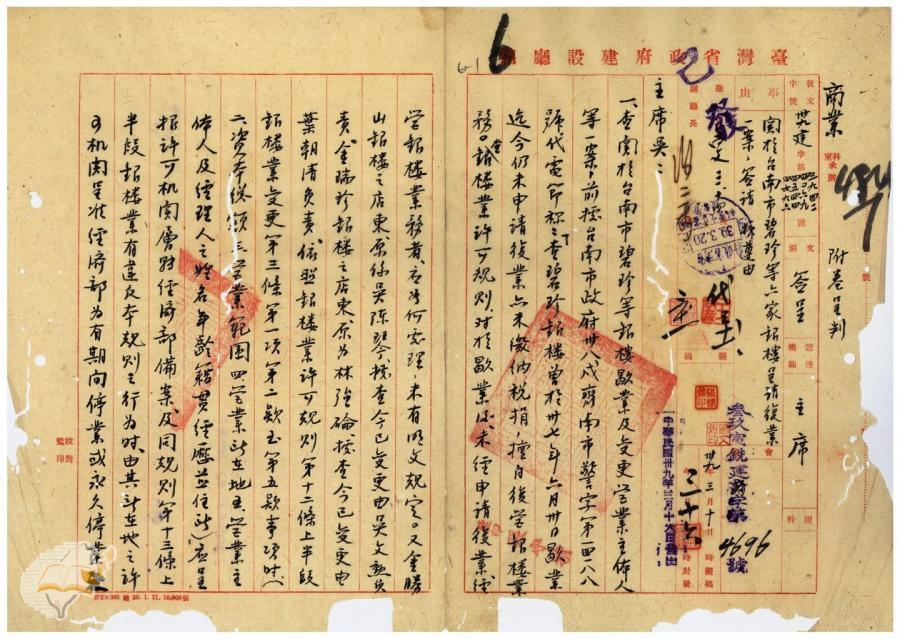 臺灣省政府建設廳稿
6
商業
附卷呈判
事由
關於台南市碧珍等六家銀樓呈請復業
一案，簽請 核遵由
文別 簽呈
主席
主席吳：
一、查關於台南市碧珍等銀樓歇業及變更營業主体人
等一案，前據台南市政府卅八戌齊南市警字第一四一八八
號代電節稱：「查碧珍銀樓曾於卅七年六月卅日歇業
迄今仍未申請復業亦未繳納稅捐擅自復營銀樓業
務」查銀樓業許可規則，对於歇業後未經申請復業經
營銀樓業務者，应如何處理，未有明文規定。又金勝
山銀樓之店東原係吳陳琴，今據查今已變更由吳文勲負
責，金瑞珍銀樓之店東原為林強論，據查今已變更由
葉朝清負責，依照銀樓業許可規則第十二條上半段
銀樓業變更第三條第一項第二款至第五款事項時（
二、資本總額三、營業範圍四、營業所在地五、營業主
体人及經理人之姓名年齡籍貫經歷並住所）应呈
報許可机関層轉經濟部備案，及同規則第十三條上
半段銀樓業有違反本規則之行為时，由其所在地之許
可机関呈准經濟部為有期间停業或永久停業處
39.3.20
叁政寅銑建商字第4696號
中華民國卅九年三月十六日發出
卅九年三月十日
校對
監印
39.1.11.10.000張